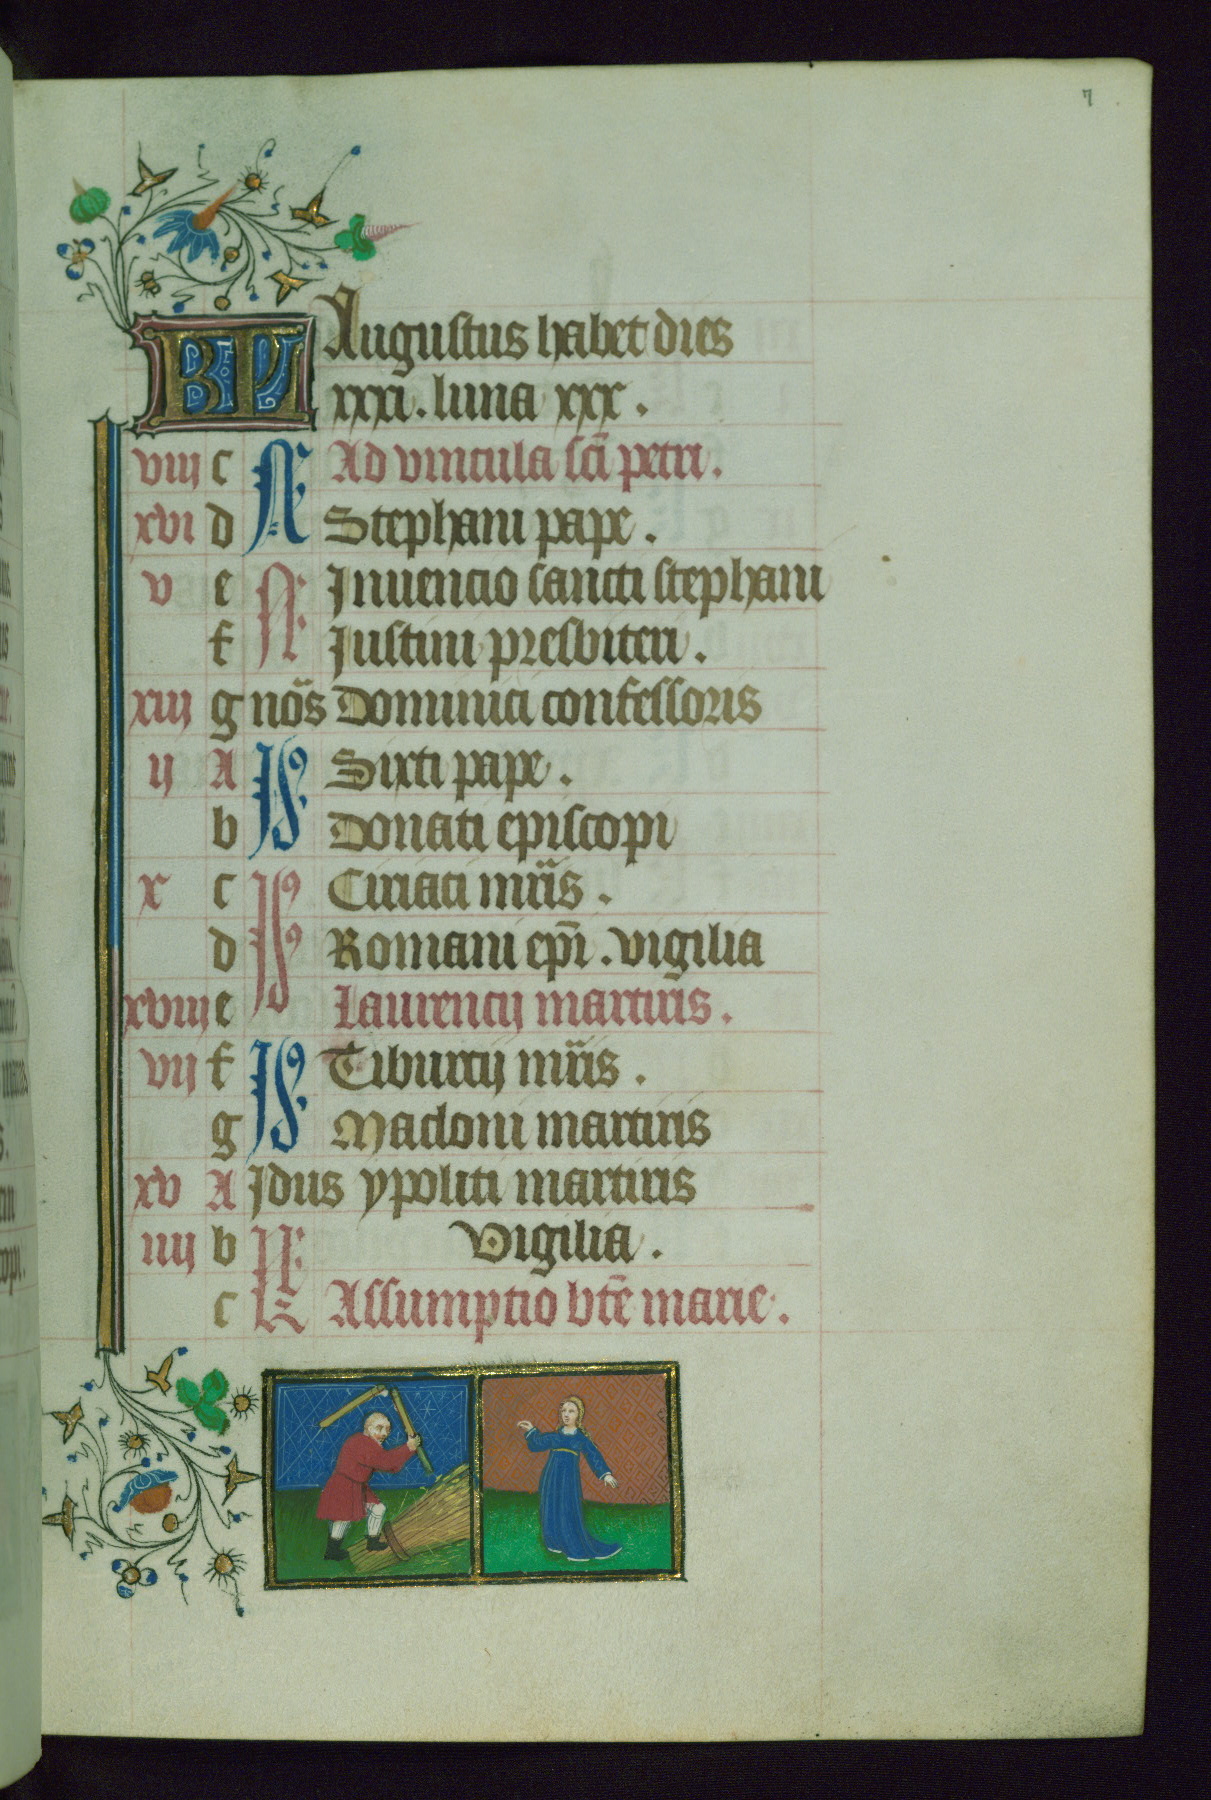 7
KL Augustus habet dies
xxxi. luna xxx.
viij c N Ad vincula sci petri.
xvi d N Stephani pape.
v e N Inuencio sancti stephani
f N Iustini presbiteri.
xiij g nos Dominici confessoris
ij A Id Sixti pape.
b Id Donati episcopi
x c Id Ciriaci mris.
d Id Romani epi. vigilia
xviij e Id Laurencij martiris.
vij f Id Tiburcij mris.
g Id Macloni martiris
xv A Idus ypoliti martiris
iiij b kl Vigilia.
c kl Assumptio bte marie.